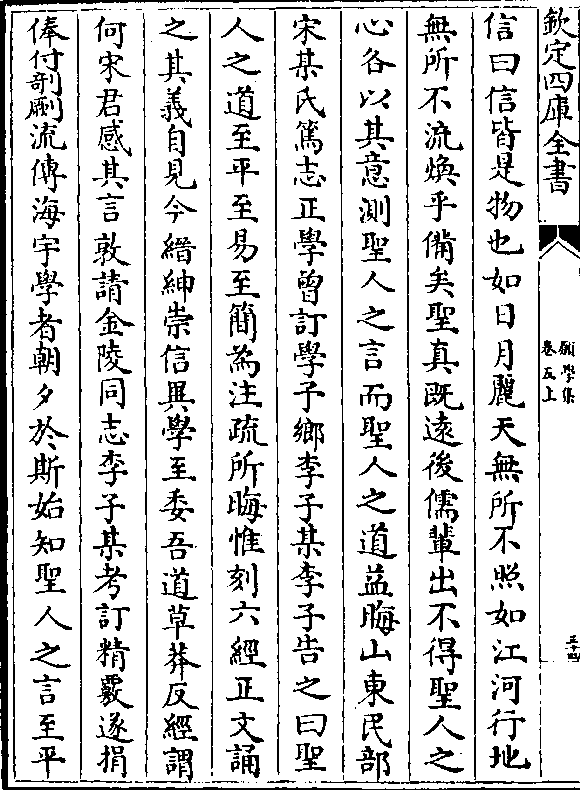 欽定四庫全書
願學集
卷五上
三十四
信曰信皆是物也如日月麗天無所不照如江河行地
無所不流煥乎備矣聖真既遠後儒輩出不得聖人之
心各以其意測聖人之言而聖人之道益晦山東民部
宋某氏篤志正學曾訂學予鄉李子某李子告之曰聖
人之道至平至易至簡為注疏所晦惟刻六經正文誦
之其義自見今縉紳崇信異學至委吾道草莽反經謂
何宋君感其言敦請金陵同志李子某考訂精覈遂捐
俸付剞劂流傳海宇學者朝夕於斯始知聖人之言至平